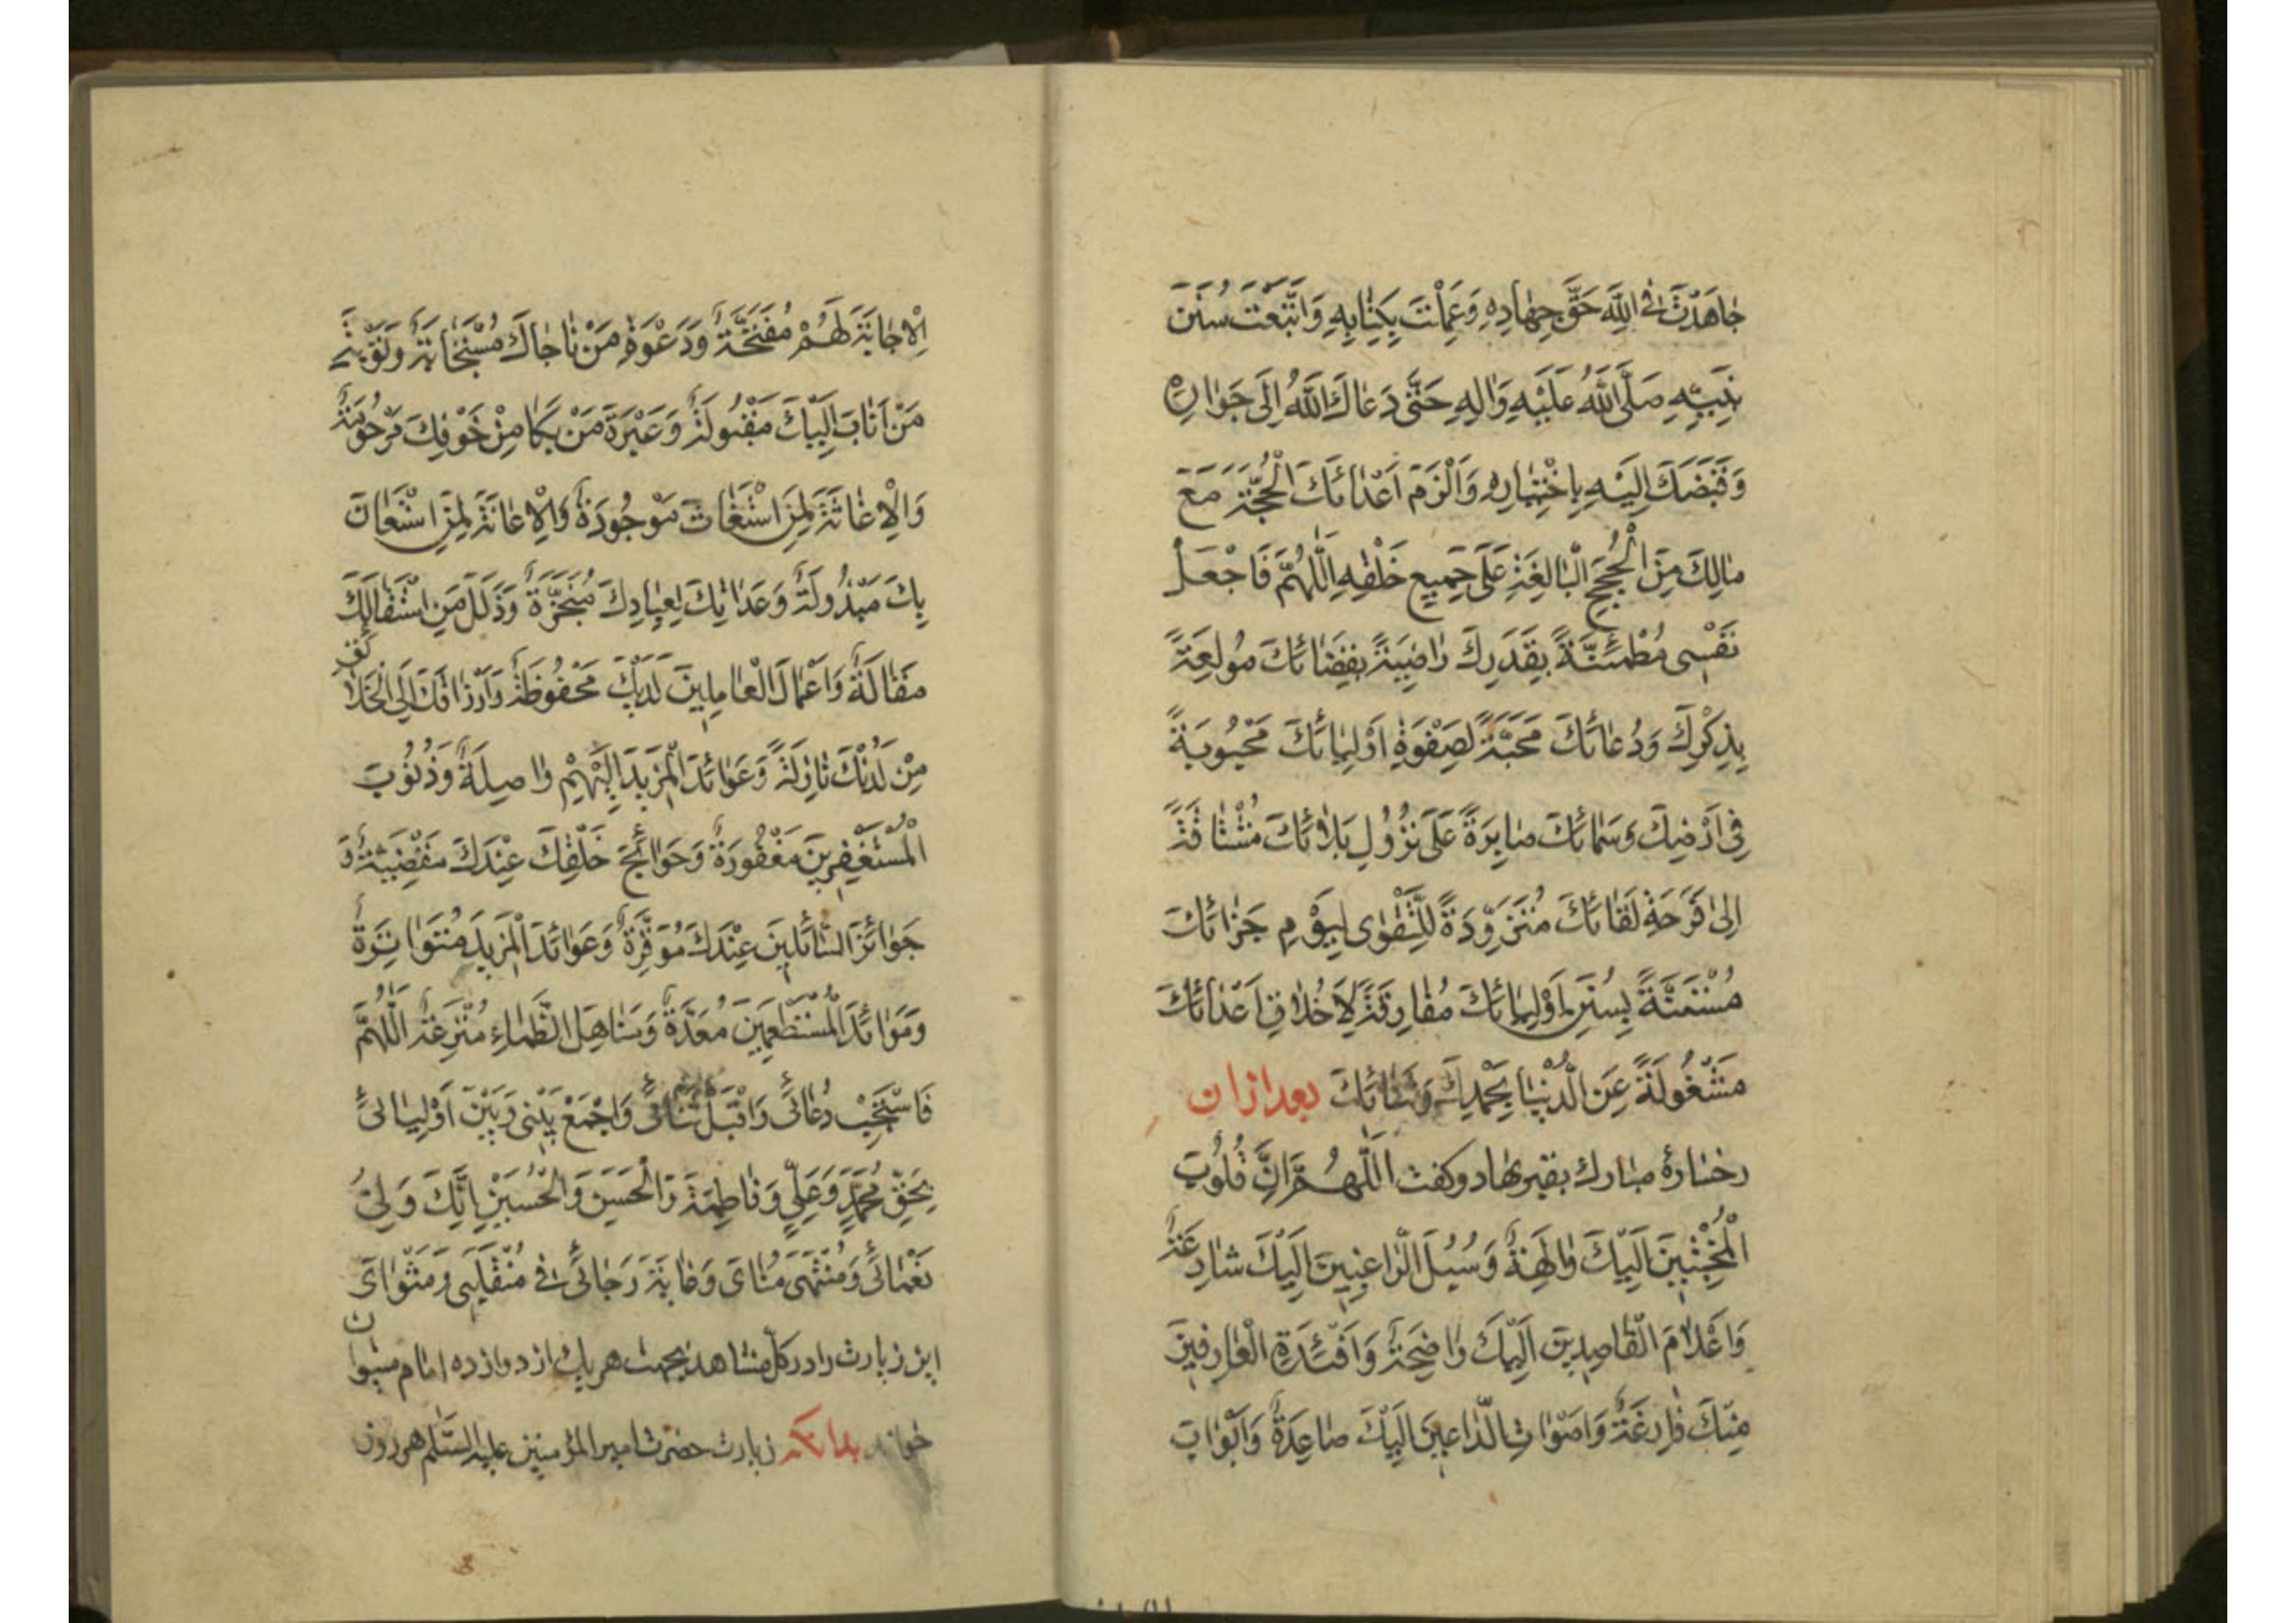 جٰاهَدْتَ فِي اللّٰهِ حَقَّ جِهٰادِهِ وَعَمِلْتَ بِكِتٰابِهِ وَاتَّبَعْتَ سُنَنَ
نَبِيِّهِ صَلَّى اللّٰهُ عَلَيْهِ وَاٰلِهِ حَتّٰى دَعٰاكَ اللّٰهُ اِلَى جَوٰارِهِ
وَقَبَضَكَ اِلَيْهِ بِاخْتِيٰارِهِ وَاَلْزَمَ اَعْدٰائَكَ الْحُجَّةَ مَعَ
مٰالَكَ مِنَ الْحُجَجِ الْبٰالِغَةِ عَلَى جَمِيعِ خَلْقِهِ اَللّٰهُمَّ فَاجْعَلْ
نَفْسِى مُطْمَئِنَّةً بِقَدَرِكَ رٰاضِيَةً بِقَضٰائِكَ مُولَعَةً
بِذِكْرِكَ وَدُعٰائِكَ مُحِبَّةً لِصَفْوَةِ اَوْلِيٰائِكَ مَحْبُوبَةً
فِى اَرْضِكَ وَسَمٰائِكَ صٰابِرَةً عَلَى نُزُولِ بَلٰائِكَ مُشْتٰاقَةً
اِلىٰ فَرْحَةِ لِقٰائِكَ مُتَزَوِّدَةً لِلتَّقْوٰى لِيَوْمِ جَزٰائِكَ
مُسْتَنَّةً بِسُنَنِ اَوْلِيٰائِكَ مُفٰارِقَةً لِاَخْلٰاقِ اَعْدٰائِكَ
مَشْغُولَةً عَنِ الدُّنْيٰا بِحَمْدِكَ وَثَنٰائِكَ بعد از ان
رخسارهٔ مبارك بقبر نهاد و كفت اَللّٰهُمَّ اِنَّ قُلُوبَ
الْمُخْبِتِينَ اِلَيْكَ وٰالِهَةٌ وَسُبُلَ الرّٰاغِبِينَ اِلَيْكَ شٰارِعَةٌ
وَاَعْلٰامَ الْقٰاصِدِينَ اِلَيْكَ وٰاضِحَةٌ وَاَفْئِدَةَ الْعٰارِفِينَ
مِنْكَ فٰازِعَةٌ وَاَصْوٰاتَ الدّٰاعِينَ اِلَيْكَ صٰاعِدَةٌ وَاَبْوٰابَ
الْاِجٰابَةِ لَهُمْ مُفَتَّحَةٌ وَدَعْوَةَ مَنْ نٰاجٰاكَ مُسْتَجٰابَةٌ وَتَوْبَةَ
مَنْ اَنٰابَ اِلَيْكَ مَقْبُولَةٌ وَعَبْرَةَ مَنْ بَكىٰ مِنْ خَوْفِكَ مَرْحُومَةٌ
وَالْاِغٰاثَةَ لِمَنِ اسْتَغٰاثَ مَوْجُودَةٌ وَالْاِعٰانَةَ لِمَنِ اسْتَعٰانَ
بِكَ مَبْذُولَةٌ وَعِدٰاتِكَ لِعِبٰادِكَ مُنْجَزَةٌ وَزَلَلَ مَنِ اسْتَقٰالَكَ
مُقٰالَةٌ وَاَعْمٰالَ الْعٰامِلِينَ لَدَيْكَ مَحْفُوظَةٌ وَاَرْزٰاقَكَ اِلَى الْخَلٰائِقِ
مِنْ لَدُنْكَ نٰازِلَةً وَعَوٰائِدَ الْمَزِيدِ اِلَيْهِمْ وٰاصِلَةٌ وَذُنُوبَ
الْمُسْتَغْفِرِينَ مَغْفُورَةٌ وَحَوٰائِجَ خَلْقِكَ عِنْدَكَ مَقْضِيَّةٌ وَ
جَوٰائِزَ السّٰائِلِينَ عِنْدَكَ مُوَفَّرَةٌ وَعَوٰائِدَ الْمَزِيدِ مُتَوٰاتِرَةٌ
وَمَوٰائِدَ الْمُسْتَطْعِمِينَ مُعَدَّةٌ وَمَنٰاهِلَ الظِّمٰاءِ مُتْرَعَةٌ اَللّٰهُمَّ
فَاسْتَجِبْ دُعٰائِى وَاقْبَلْ ثَنٰائِى وَاجْمَعْ بَيْنِى وَبَيْنَ اَوْلِيٰائِى
بِحَقِّ مُحَمَّدٍ وَعَلِيٍّ وَفٰاطِمَةَ وَالْحَسَنِ وَالْحُسَيْنِ اِنَّكَ وَلِىُّ
نَعْمٰائِى وَمُنْتَهىٰ مُنٰاىَ وَغٰايَةُ رَجٰائِى فِى مُنْقَلَبِى وَمَثْوٰاىَ
اين زيارت را در كلّ مشاهد بجهت هر يك از دوازده امام ميتوان
خواند بدانكه زيارت حضرت امير المؤمنين عليه السّلم هر روز